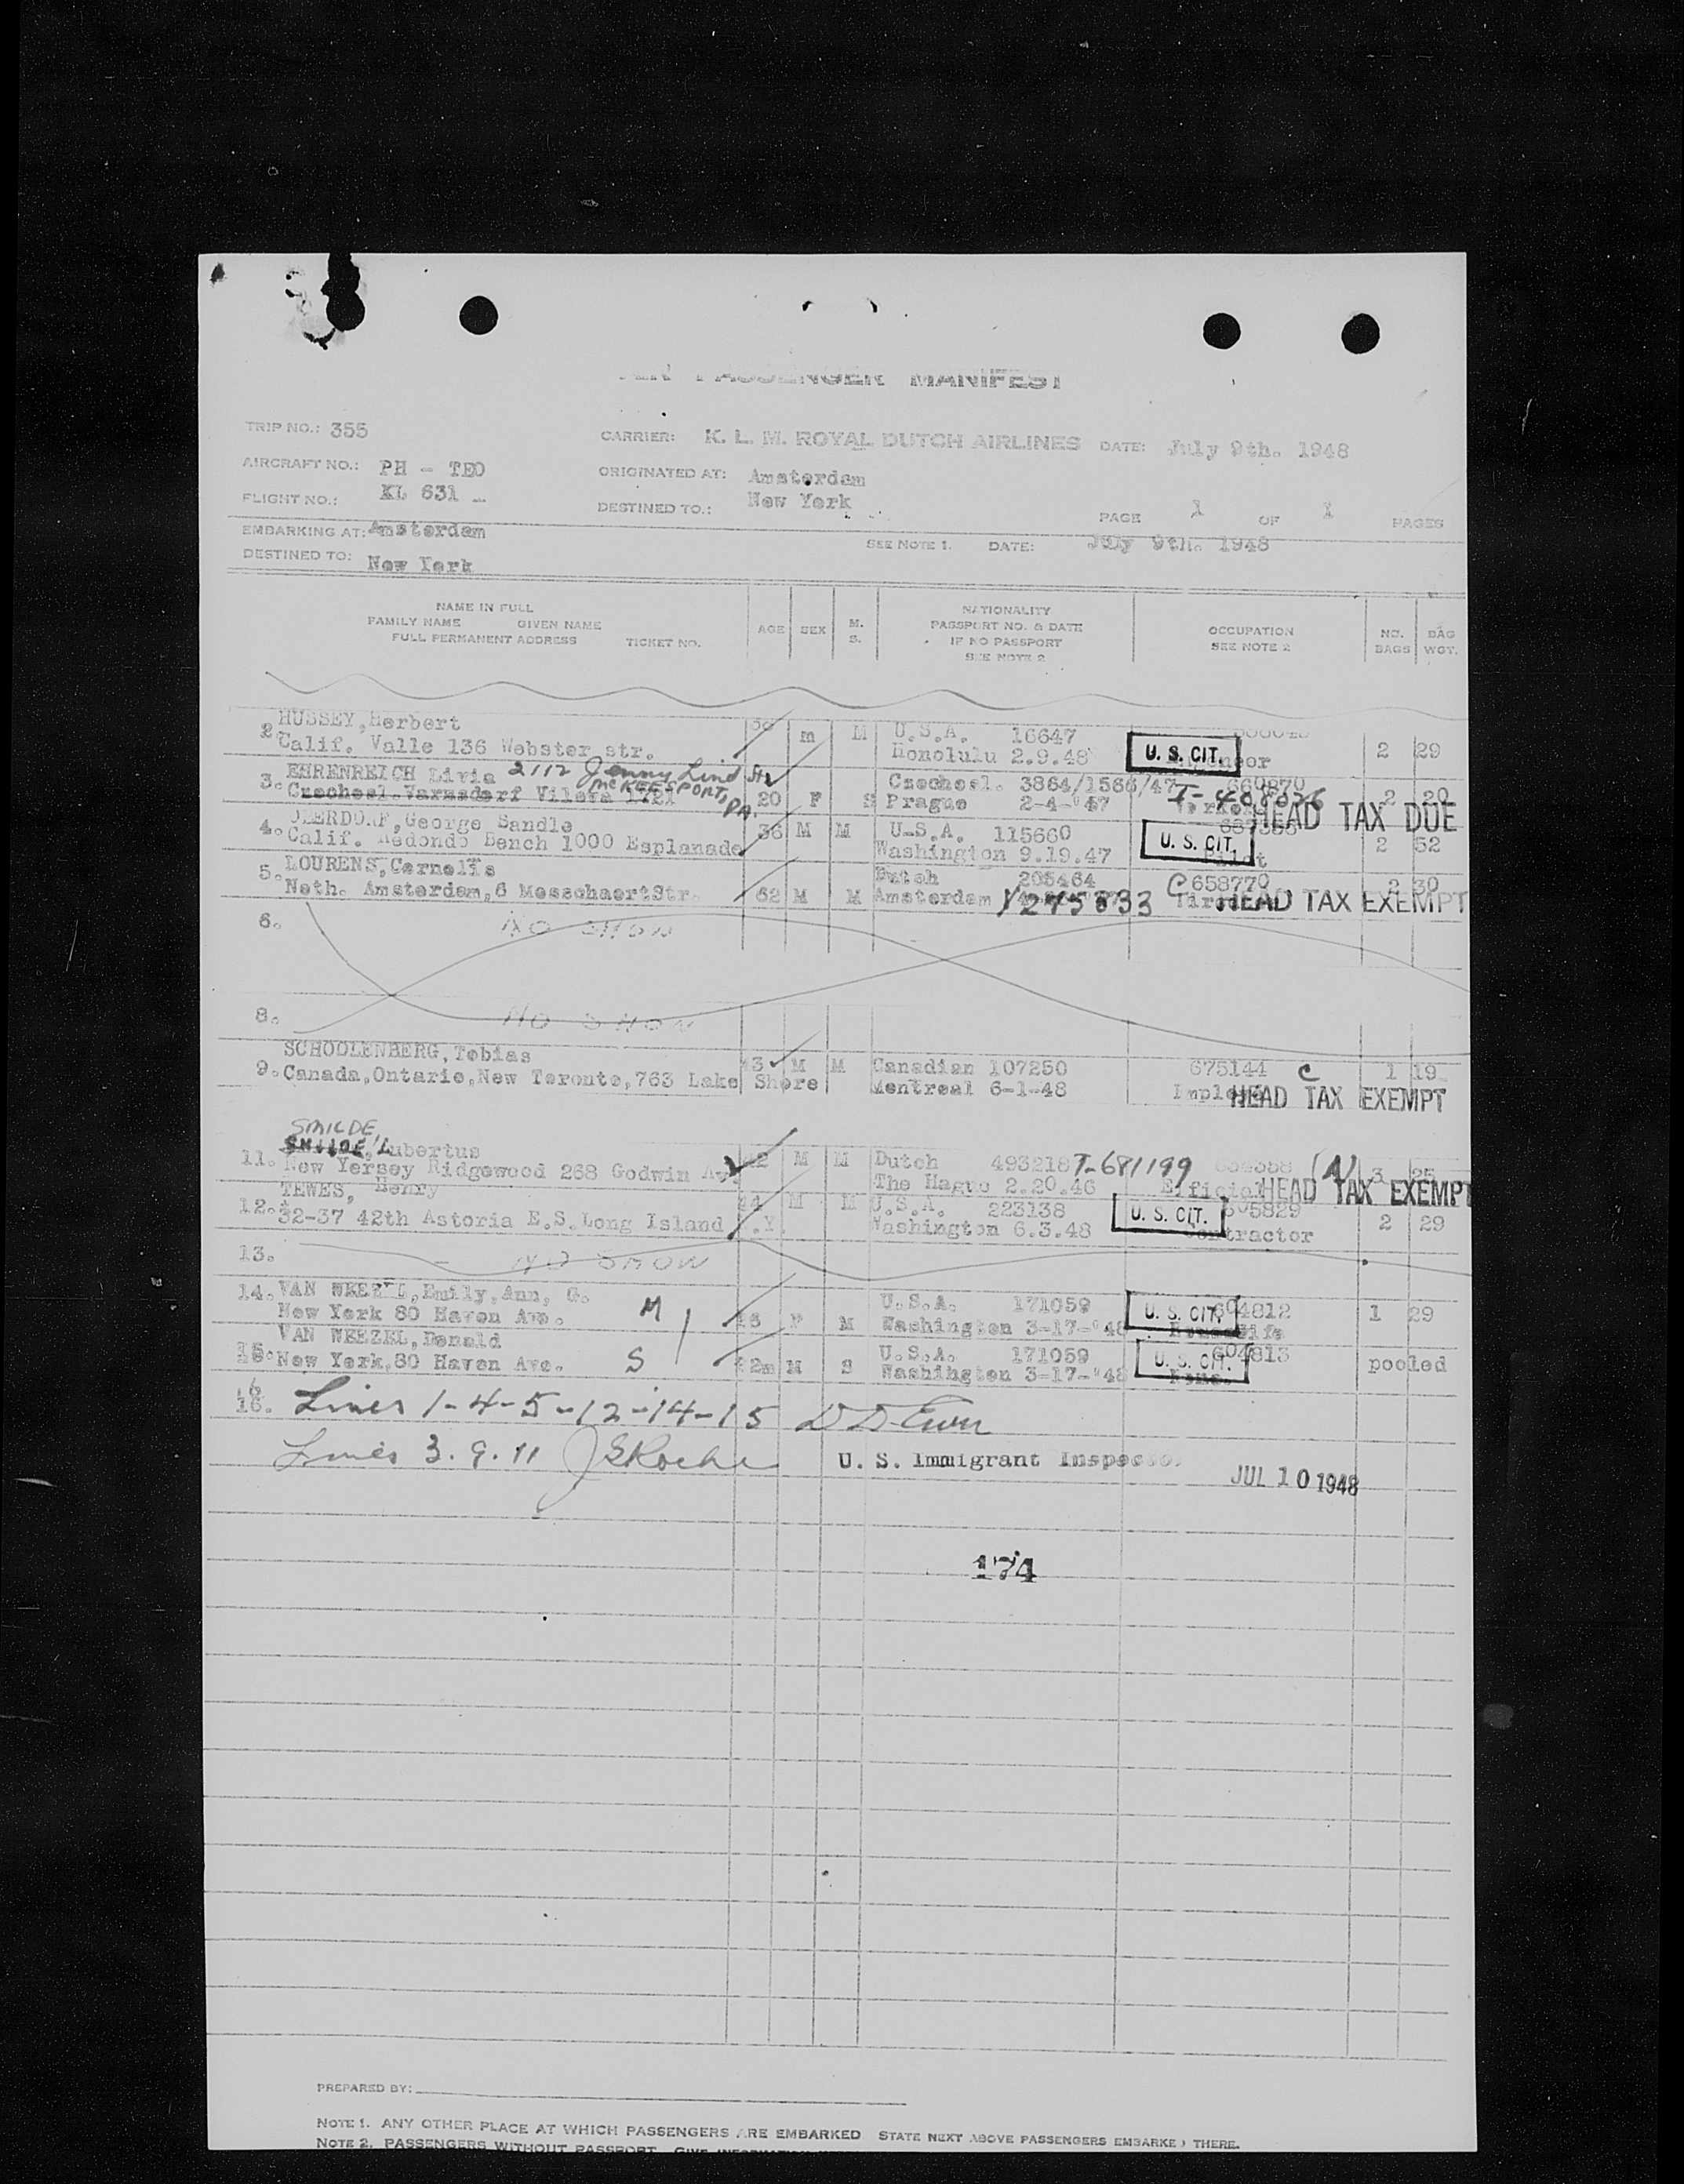 AIR PASSENGER MANIFEST
TRIP NO.: 355 CARRIER: K. L. M. ROYAL DUTCH AIRLINES DATE: July 9th. 1948
AIRCRAFT NO.: PH - TEO ORIGINATED AT: Amsterdam
FLIGHT NO.: KL 631 DESTINED TO.: New York
PAGE 1 OF 1 PAGES
EMBARKING AT: Amsterdam SEE NOTE 1. DATE: July 9th. 1948
DESTINED TO: New York
NAME IN FULL
FAMILY NAME GIVEN NAME
FULL PERMANENT ADDRESS TICKET NO. AGE SEX M. S. NATIONALITY PASSPORT NO. & DATE IF NO PASSPORT SEE NOTE 2 OCCUPATION SEE NOTE 2 NO. BAGS BAG WGT.
2. HUSSEY, Herbert m M U.S.A. 16647
Calif. Valle 136 Webster str. Honolulu 2.9.48 U. S. CIT. 2 29
3. EHRENREICH Livia 2112 Jenny Lind Str Czechosl. 3864/1566/47 660870
Czechosl. Varnsdorf Vileva 1721 McKEESPORT, PA. 20 F S Prague 2-4-'47 T-408026 2 20
HEAD TAX DUE
4. George Sandle 36 M M U.S.A. 115660
Calif. Redondo Bench 1000 Esplanade Washington 9.19.47 U. S. CIT. 2 52
5. LOURENS, Cornelis Dutch 205464 C 658770 2 30
Neth. Amsterdam, 6 MesschaertStr. 62 M M Amsterdam V245833 HEAD TAX EXEMPT
6. NO SHOW
8. NO SHOW
SCHOOLENBERG, Tobias
9. Canada, Ontario, New Toronto, 763 Lake Shore 43 M M Canadian 107250 675144 C 1 19
Montreal 6-1-48 HEAD TAX EXEMPT
SMILDE
11. Lubertus 42 M M Dutch 493218 T-681199 (A) 3 25
New Yersey Ridgewood 268 Godwin Av. The Hague 2.20.46 HEAD TAX EXEMPT
12. TEWES, Henry 44 M M U.S.A. 223138 U. S. CIT.
32-37 42th Astoria E.S. Long Island Washington 6.3.48 Contractor 2 29
13. NO SHOW
14. VAN WEEZEL, Emily, Ann, G. U.S.A. 171059 U. S. CIT. 604812
New York 80 Haven Ave. M F M Washington 3-17-'48 Housewife 1 29
15. VAN WEEZEL, Donald U.S.A. 171059 U. S. CIT. 604813
New York, 80 Haven Ave. S M S Washington 3-17-'48 pooled
16. Lines 1-4-5-12-14-15
Lines 3. 9. 11 J E Roche U. S. Immigrant Inspector
JUL 10 1948
174
PREPARED BY:
NOTE 1. ANY OTHER PLACE AT WHICH PASSENGERS ARE EMBARKED STATE NEXT ABOVE PASSENGERS EMBARKED THERE.
NOTE 2. PASSENGERS WITHOUT PASSPORT